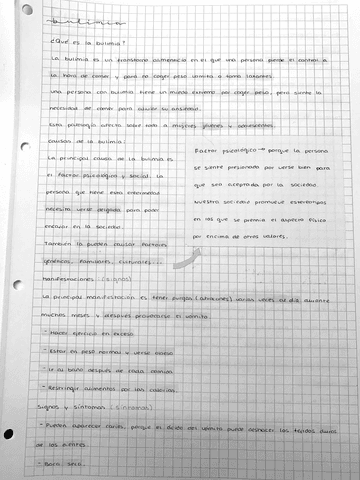 bulimia
¿Qué es la bulimia?
La bulimia es un transtorno alimenticio en el que una persona pierde el control a
la hora de comer y para no coger peso vomita o toma laxantes.
una persona con bulimia tiene un miedo extremo por coger peso, pero siente la
necesidad de comer para calmar su ansiedad.
Esta patología afecta sobre todo a mujeres jóvenes y adolescentes.
causas de la bulimia:
La principal causa de la bulimia es
el factor psicológico y social. La
persona que tiene esta enfermedad
necesita verse delgada para poder
encajar en la sociedad.
También la pueden causar factores
genéticos, familiares, culturales...
Factor psicológico → porque la persona
se siente presionada por verse bien para
que sea aceptada por la sociedad
Nuestra sociedad promueve estereotipos
en los que se premia el aspecto físico
por encima de otros valores.
manifestaciones: (signos)
La principal manifestación es tener purgas (atracones) varias veces al día durante
muchos meses y después provocarse el vómito.
- Hacer ejercicio en exceso.
- Estar en peso normal y verse obeso
- Ir al baño después de cada comida
- Restringir alimentos por las calorías.
Signos y síntomas (síntomas)
- Pueden aparecer caries, porque el ácido del vómito puede deshacer los tejidos duros
de los dientes.
- Boca seca.